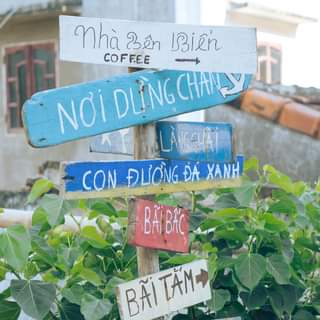 Nhà Bên Biển
COFFEE
NƠI DỪNG CHÂN
LÀNG CHÀI
CON ĐƯỜNG ĐÁ XANH
BÃI BẤC
BÃI TẮM